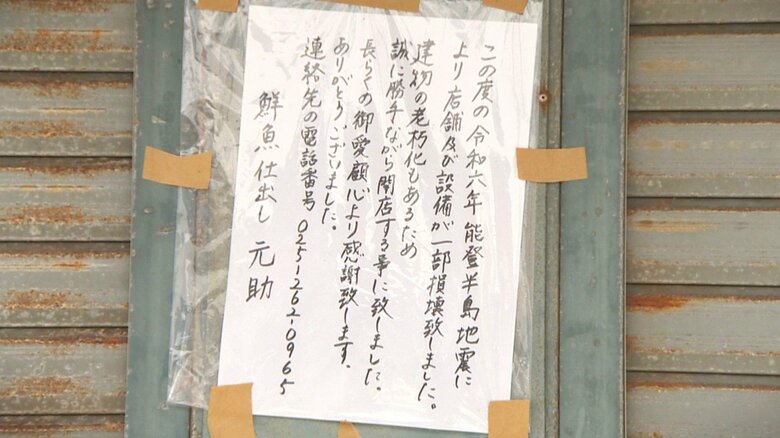 この度の令和六年 能登半島地震に
より 店舗及び設備が一部損壊致しました。
建物の老朽化もあるため
誠に勝手ながら閉店する事に致しました。
長らくの御愛顧心より感謝致します。
ありがとうございました。
連絡先の電話番号 025-262-0965
鮮魚仕出し 元助